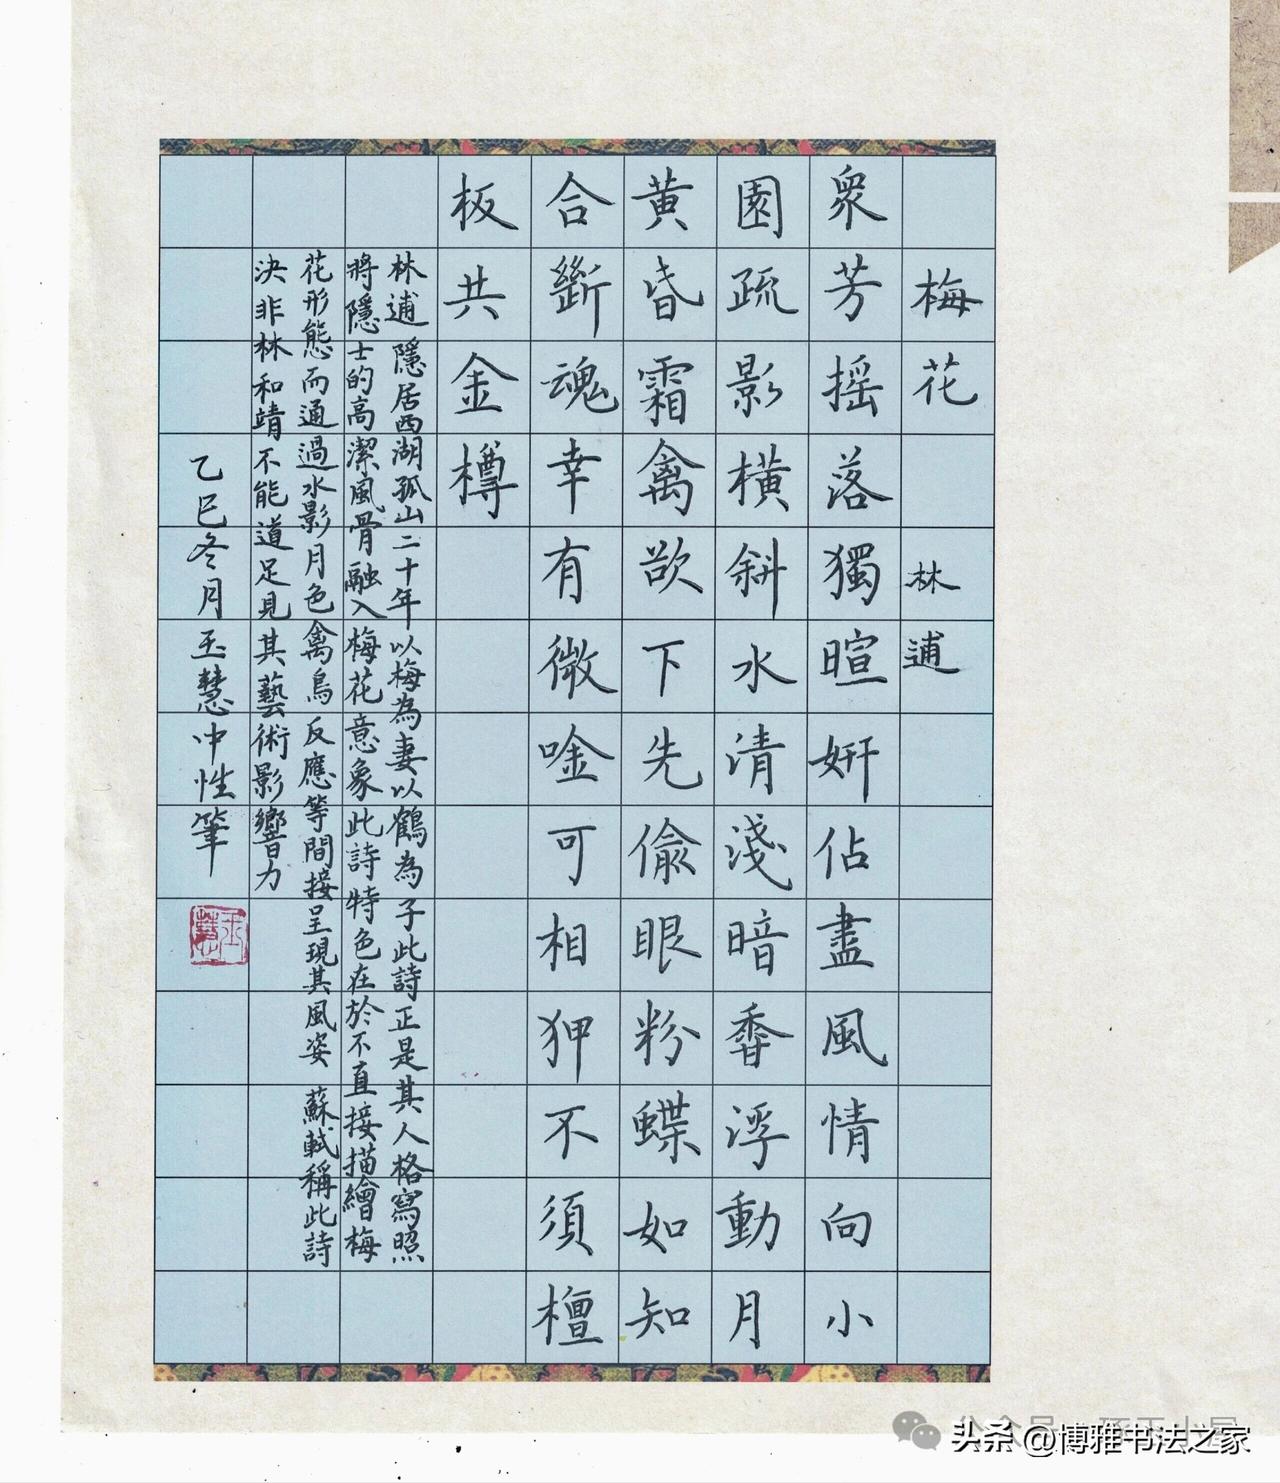 梅花 林逋
衆芳摇落獨暄妍佔盡風情向小
園疏影橫斜水清淺暗香浮動月
黄昏霜禽欲下先偷眼粉蝶如知
合斷魂幸有微唫可相狎不須檀
板共金樽
林逋隱居西湖孤山二十年以梅為妻以鶴為子此詩正是其人格寫照
將隱士的高潔風骨融入梅花意象此詩特色在於不直接描繪梅
花形態而通過水影月色禽鳥反應等間接呈現其風姿 蘇軾稱此詩
決非林和靖不能道足見其藝術影響力
乙巳冬月玉慧中性筆
玉慧
头条 @博雅书法之家